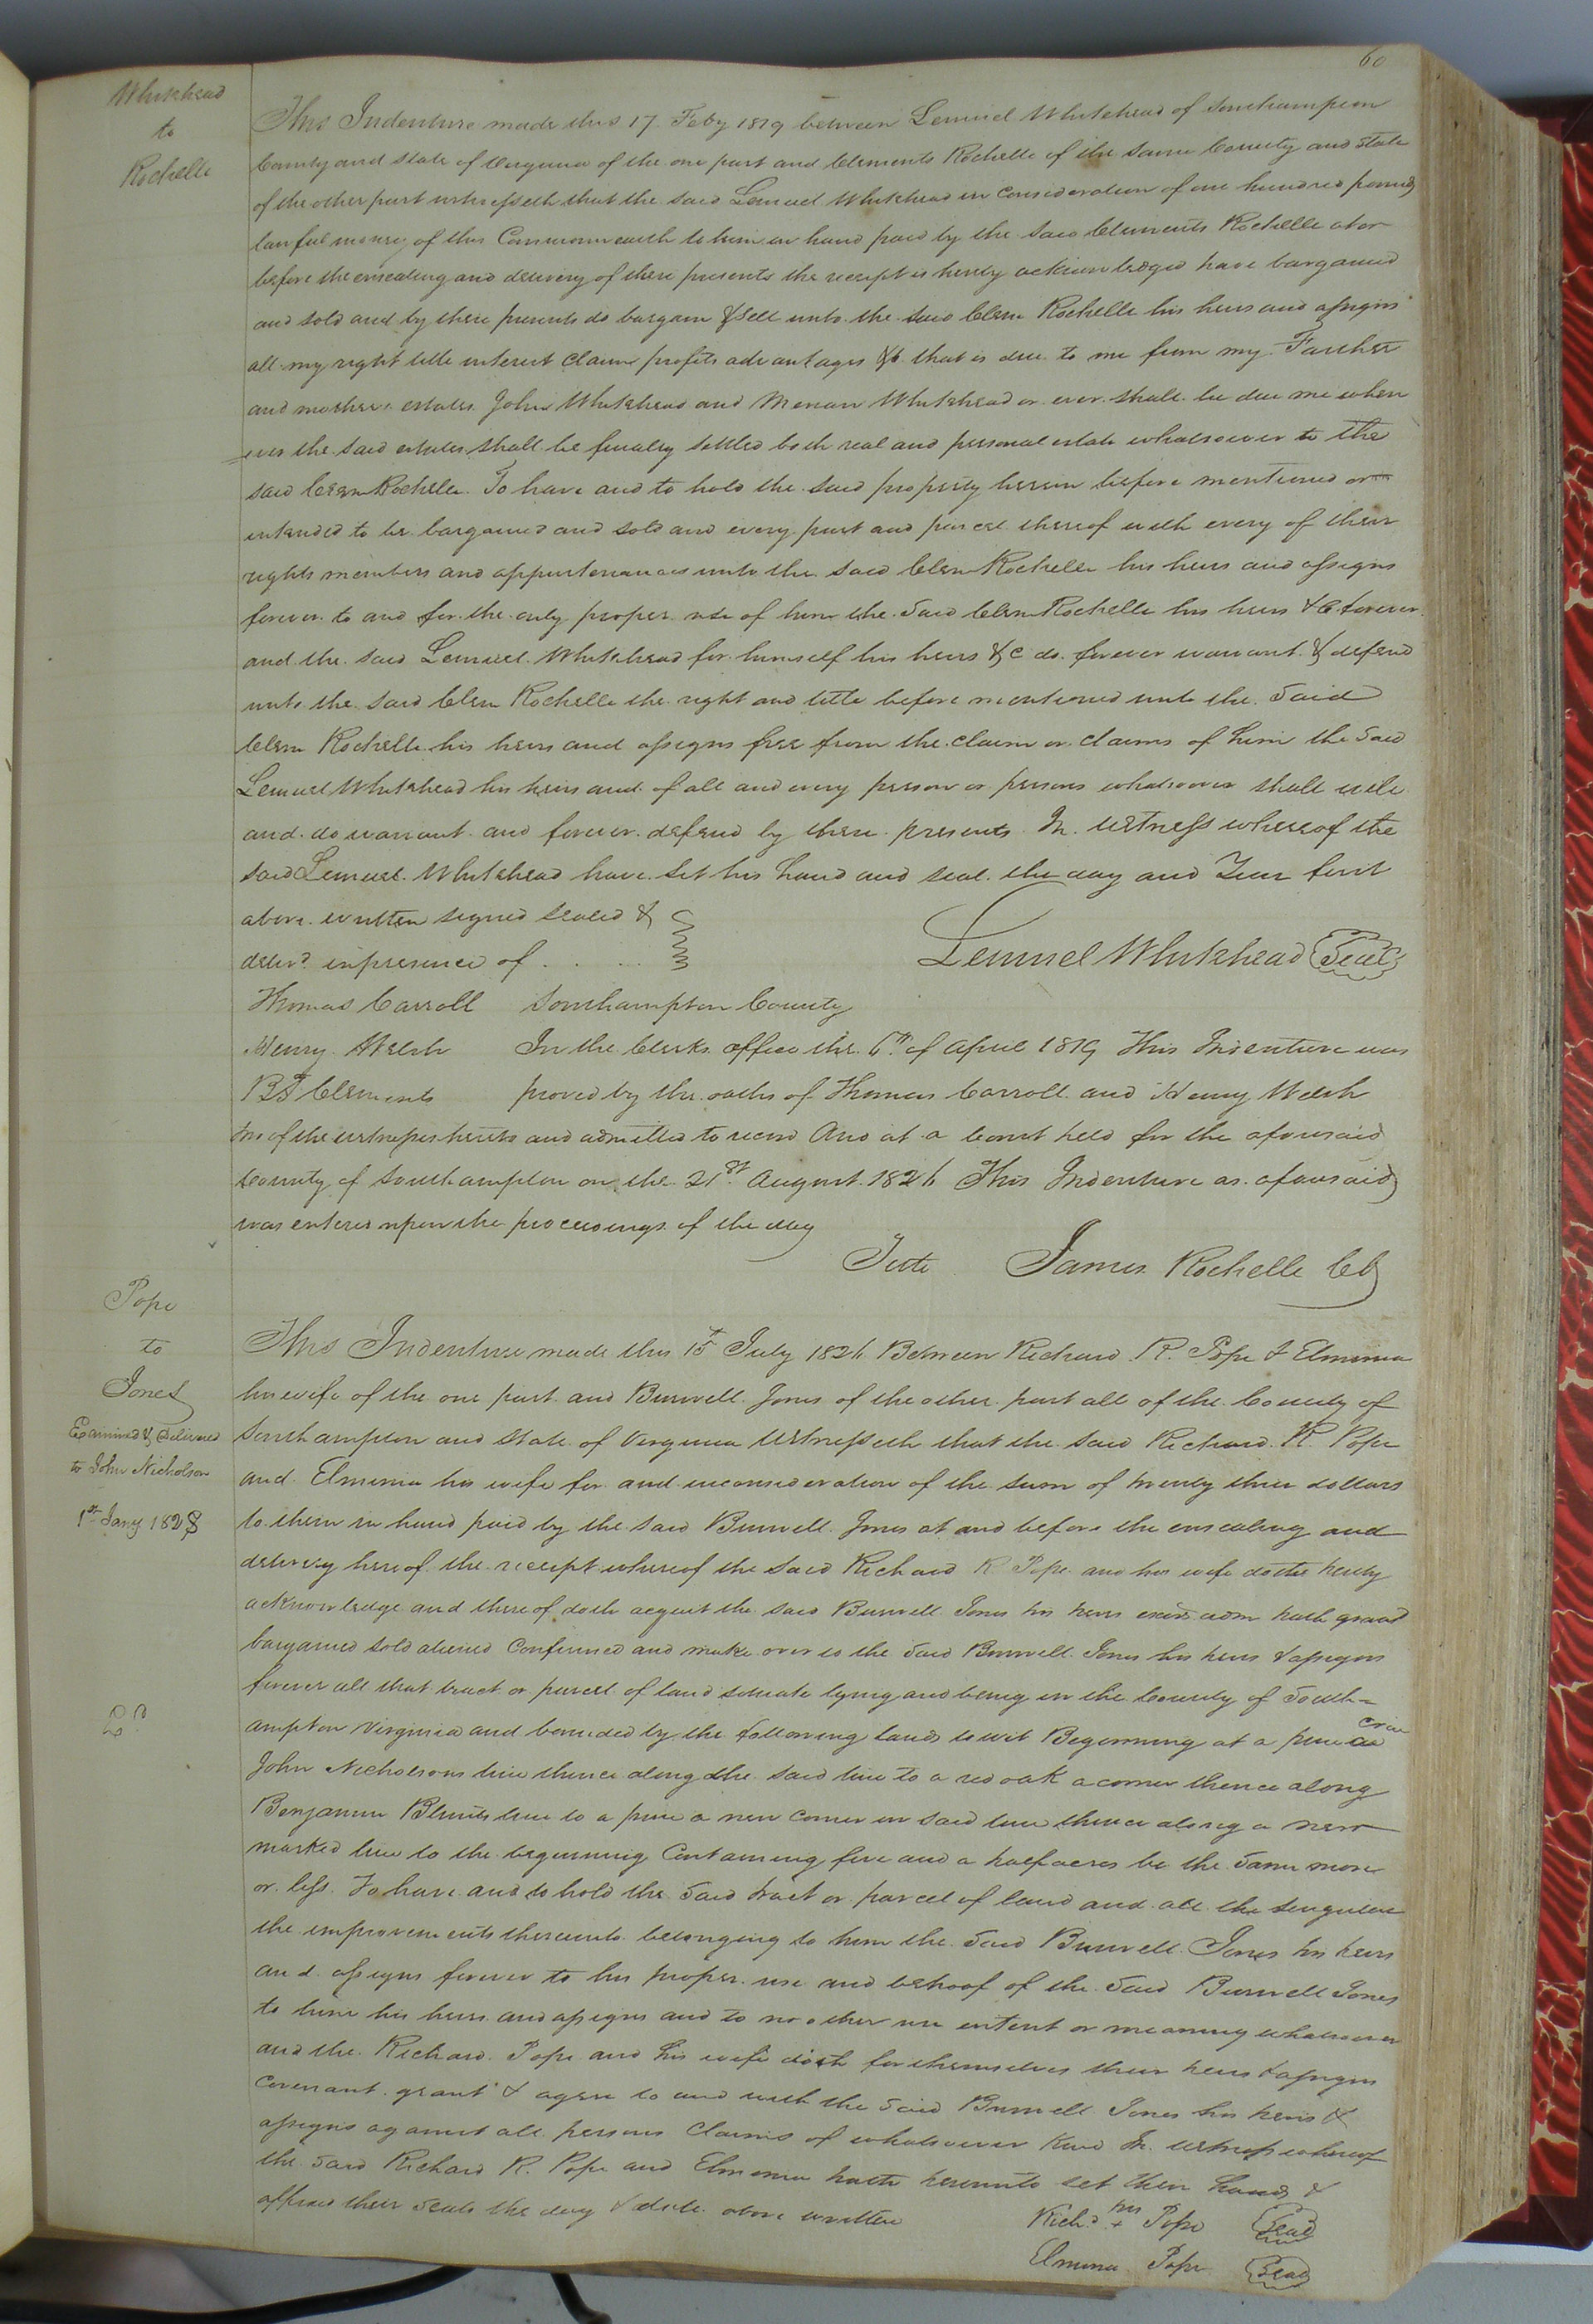 60
Whitehead
to
Rochelle
This Indenture made this 17 Feby 1819 between Lemuel Whitehead of Southampton
County and State of Virginia of the one part and Clements Rochelle of the same County and State
of the other part witnesseth that the said Lemuel Whitehead in consideration of one hundred pounds
lawful money of this Commonwealth to him in hand paid by the said Clements Rochelle at or
before the ensealing and delivery of these presents the receipt is hereby acknowledged have bargained
and sold and by these presents do bargain & sell unto the said Clem Rochelle his heirs and assigns
all my right title interest claim profits advantages &c that is due to me from my Farther
and mothers estates John Whitehead and Merian Whitehead or ever shall be due me when
ever the said estates shall be finally settled both real and personal estate whatsoever to the
said Clem Rochelle. To have and to hold the said property herein before mentioned or
intended to be bargained and sold and every part and parcel thereof with every of their
rights members and appurtenances unto the said Clem Rochelle his heirs and assigns
forever to and for the only proper use of him the said Clem Rochelle his heirs &c forever
and the said Lemuel Whitehead for himself his heirs &c do forever warrant & defend
unto the said Clem Rochelle the right and title before mentioned unto the said
Clem Rochelle his heirs and assigns free from the claim or claims of him the said
Lemuel Whitehead his heirs and of all and every person or persons whatsoever shall will
and do warrant and forever defend by these presents In witness whereof the
said Lemuel Whitehead have set his hand and seal the day and Year first
above written signed sealed &
delivd in presence of . . . . Lemuel Whitehead Seal
Thomas Carroll Southampton County
Henry Welsh In the Clerks office the 6th of April 1819 This Indenture was
B F Clements proved by the oaths of Thomas Carroll and Henry Welsh
two of the witnesses hereto and admitted to record And at a Court held for the aforesaid
County of Southampton on the 21st August 1826 This Indenture as aforesaid
was entered upon the proceedings of the day
Teste James Rochelle CC
Pope
to
Jones
Examined & Delivered
to John Nicholson
1st Jany 1828
This Indenture made this 15 July 1826 Between Richard R. Pope & Elmina
his wife of the one part and Burwell Jones of the other part all of the County of
Southampton and State of Virginia Witnesseth that the said Richard R. Pope
and Elmenia his wife for and in consideration of the sum of twenty three dollars
to them in hand paid by the said Burwell Jones at and before the ensealing and
delivery hereof the receipt whereof the said Richard R Pope and his wife doth hereby
acknowledge and thereof doth acquit the said Burwell Jones his heirs exors adm hath grant
bargained sold aliened Confirmed and make over to the said Burwell Jones his heirs & assigns
forever all that tract or parcel of land situate lying and being in the County of South=
ampton Virginia and bounded by the following lands towit Beginning at a pine
John Nicholsons line thence along the said line to a red oak a corner thence along
Benjamin Blunts line to a pine a new corner in said line thence along a new
marked line to the beginning Containing five and a half acres be the same more
or less. To have and to hold the said tract or parcel of land and all the singular
the improvements thereunto belonging to him the said Burwell Jones his heirs
and assigns forever to his proper use and behoof of the said Burwell Jones
to him his heirs and assigns and to no other use intent or meaning whatsoever
and the Richard Pope and his wife doth for themselves their heirs & assigns
covenant grant & agree to and with the said Burwell Jones his heirs &
assigns against all persons Claims of whatsoever kind In witness whereof
the said Richard R. Pope and Elmenia hath hereunto set their hands &
affixed their seals the day & date above written
Richd his + Pope Seal
Elmina Pope Seal